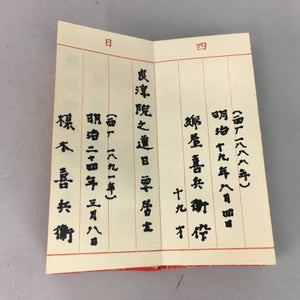 四日
(西一八八六年)
明治十九年八月四日
綿屋喜兵衛伜
十九才
良淳院之道日栗居士
(西一八九一年)
明治二十四年三月八日
楳本喜兵衛